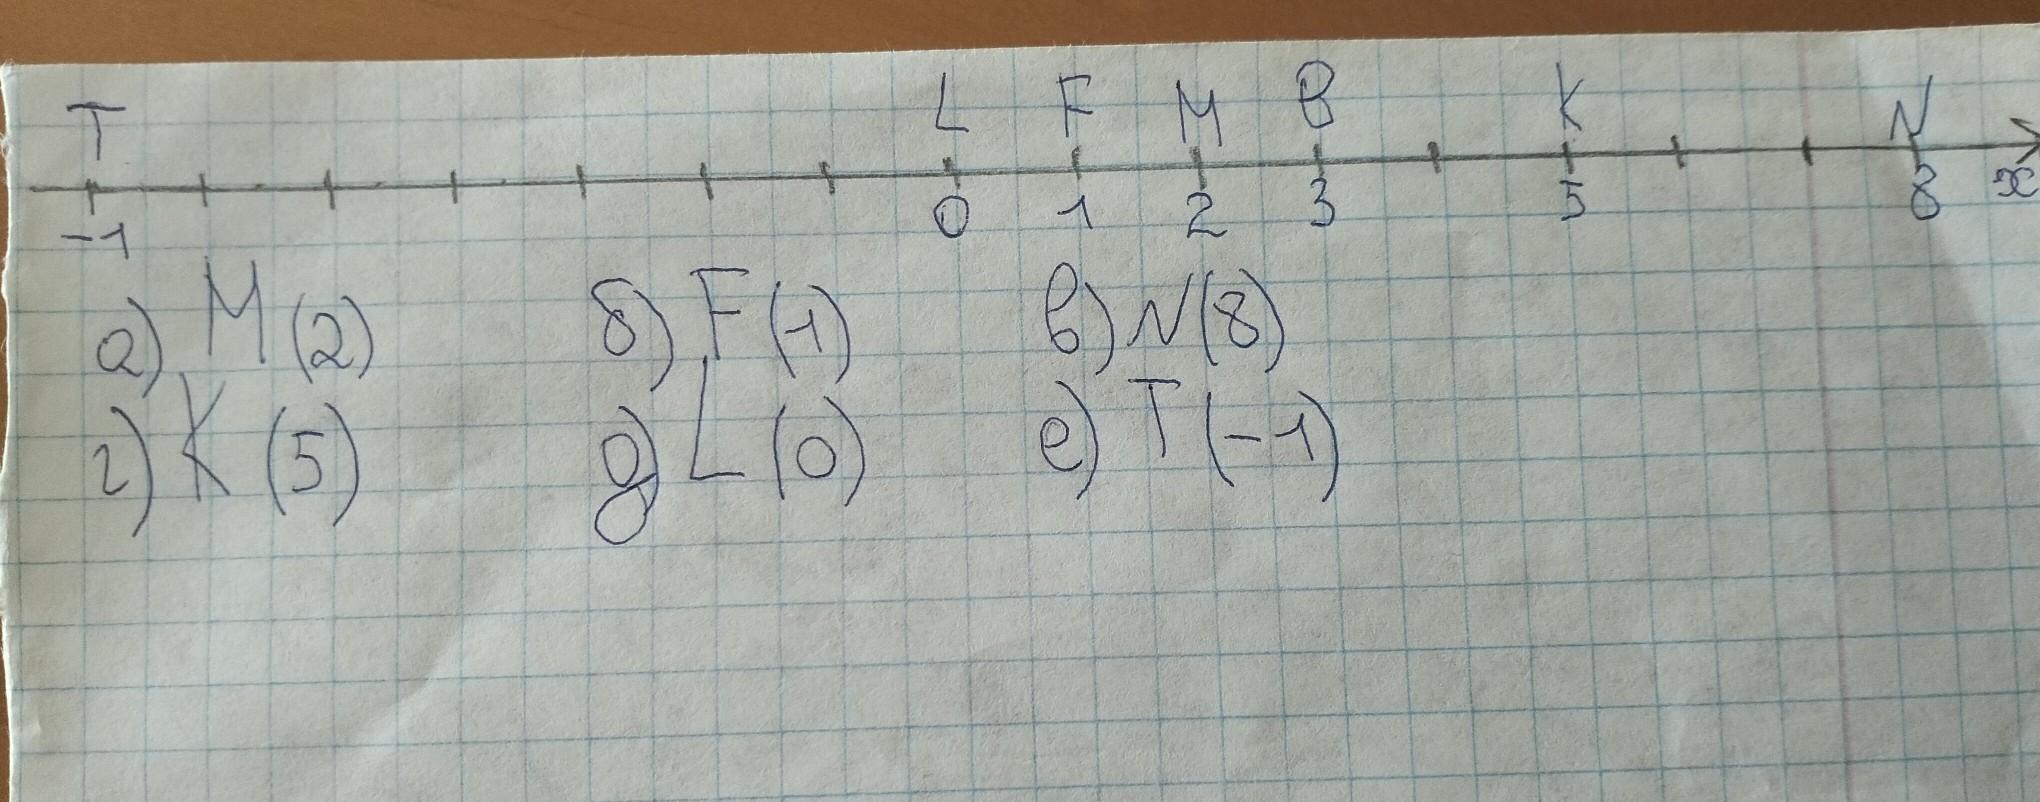 T L F M B K N
-1 0 1 2 3 5 8 x
а) M(2) б) F(1) в) N(8)
г) K(5) д) L(0) е) T(-1)